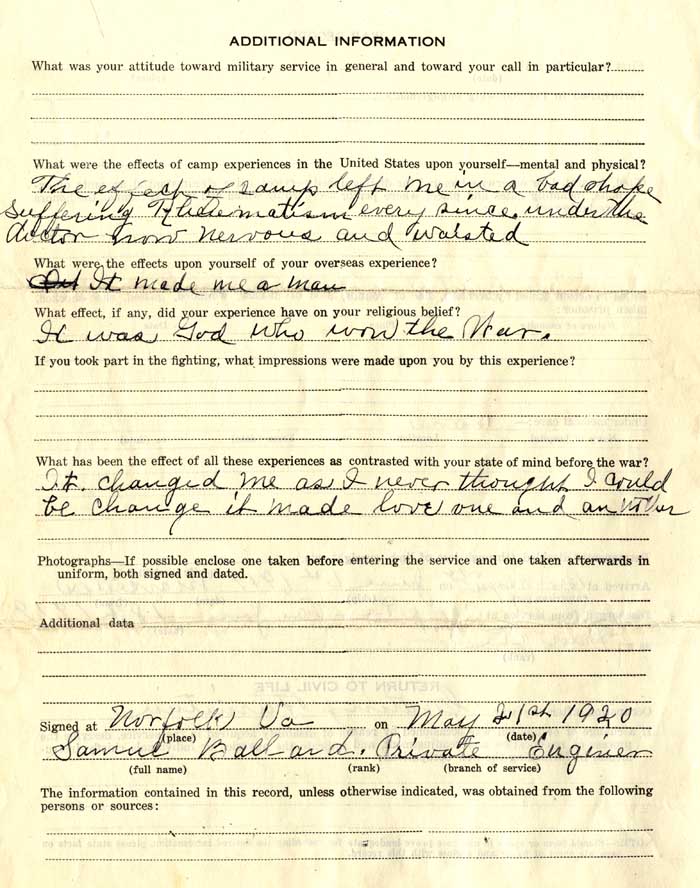 ADDITIONAL INFORMATION
What was your attitude toward military service in general and toward your call in particular?
What were the effects of camp experiences in the United States upon yourself—mental and physical?
The effect of camp left me in a bad shape
suffering Rhuematism every since under the
doctor now nervous and walsted
What were the effects upon yourself of your overseas experience?
It made me a man
What effect, if any, did your experience have on your religious belief?
It was God who won the War.
If you took part in the fighting, what impressions were made upon you by this experience?
What has been the effect of all these experiences as contrasted with your state of mind before the war?
It. changed me as I never thought I could
be change it made love one and another
Photographs—If possible enclose one taken before entering the service and one taken afterwards in
uniform, both signed and dated.
Additional data
RETURN TO CIVIL LIFE
Signed at Norfolk Va on May 21st 1920
(place) (date)
Samuel Ballard. Private Enginer
(full name) (rank) (branch of service)
The information contained in this record, unless otherwise indicated, was obtained from the following
persons or sources: